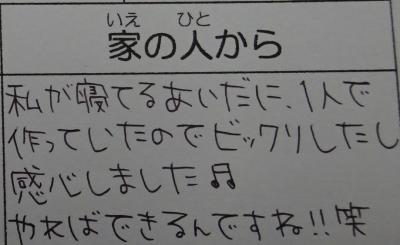 いえ ひと
家の人から
私が寝てるあいだに、1人で
作っていたのでビックリしたし
感心しました♫
やればできるんですね!!笑